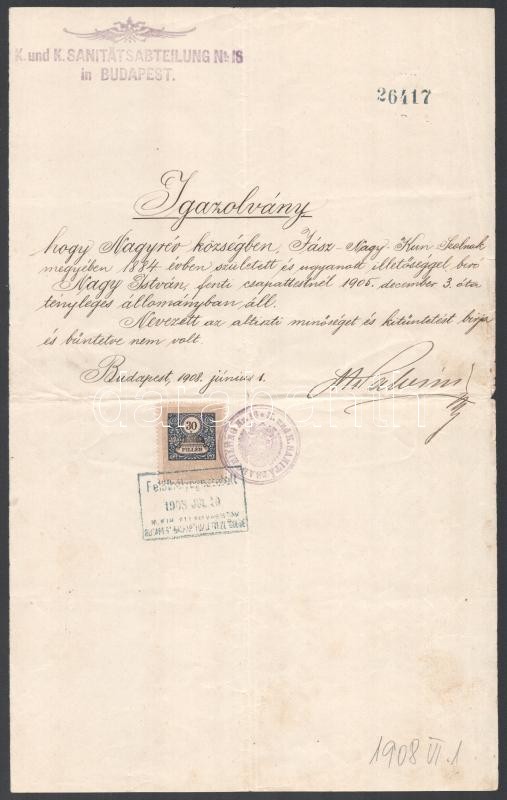 K. und K. SANITÄTSABTEILUNG No 16
in BUDAPEST.
26417
Igazolvány
hogy Nagyrév községben, Jász-Nagy-Kun-Szolnok
megyében 1884 évben született és ugyanott illetőséggel biró
Nagy István, fenti csapattestnél 1905. december 3. óta
tényleges állományban áll.
Nevezett az altiszti minőséget és kitüntetést birja
és büntetve nem volt.
Budapest, 1908. június 1.
30
FILLÉR
Felülbélyegeztetett
1908 JUL 10
1908 VI. 1